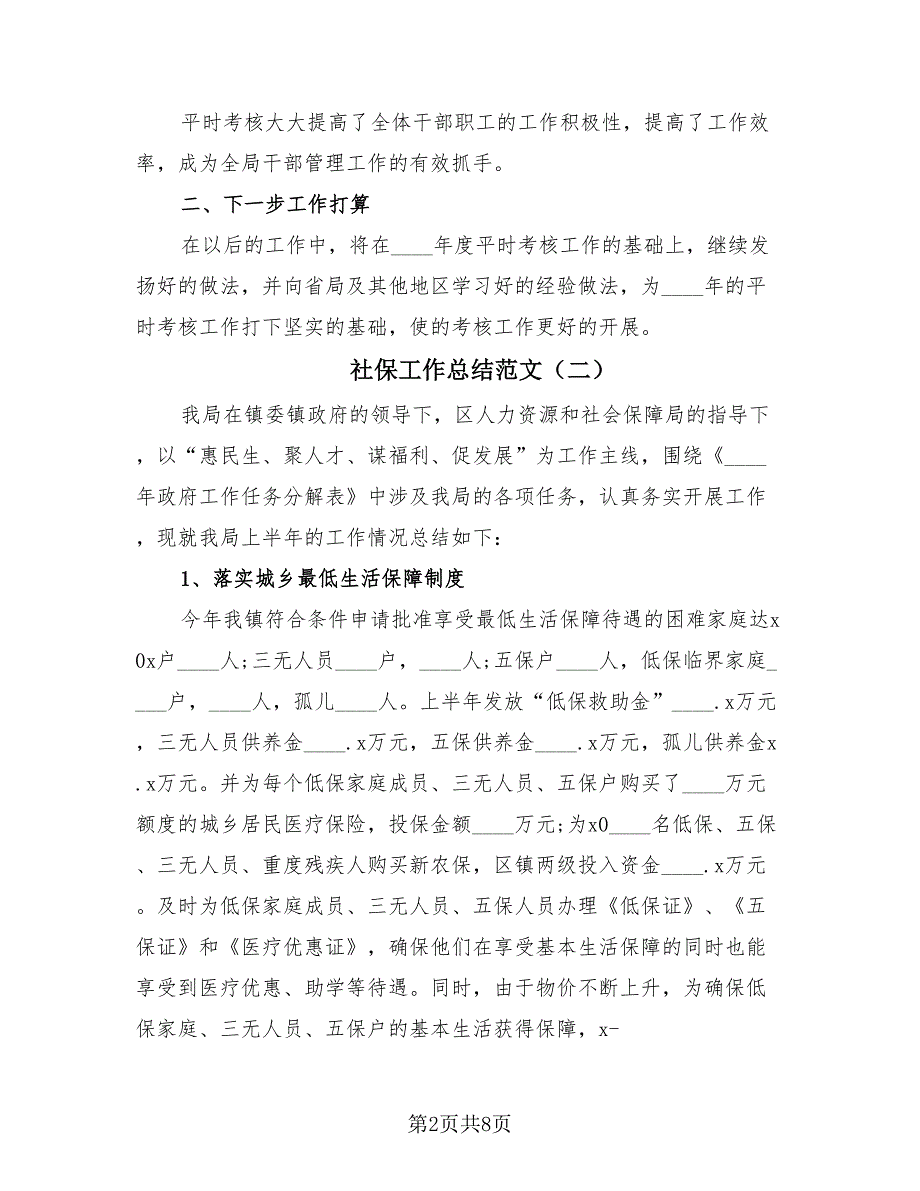 平时考核大大提高了全体干部职工的工作积极性，提高了工作效
率，成为全局干部管理工作的有效抓手。
二、下一步工作打算
在以后的工作中，将在____年度平时考核工作的基础上，继续发
扬好的做法，并向省局及其他地区学习好的经验做法，为____年的平
时考核工作打下坚实的基础，使的考核工作更好的开展。
社保工作总结范文（二）
我局在镇委镇政府的领导下，区人力资源和社会保障局的指导下
，以“惠民生、聚人才、谋福利、促发展”为工作主线，围绕《____
年政府工作任务分解表》中涉及我局的各项任务，认真务实开展工作
，现就我局上半年的工作情况总结如下：
1、落实城乡最低生活保障制度
今年我镇符合条件申请批准享受最低生活保障待遇的困难家庭达x
0x户____人;三无人员____户，____人;五保户____人，低保临界家庭_
___户，____人，孤儿____人。上半年发放“低保救助金”____.x万元
，三无人员供养金____.x万元，五保供养金____.x万元，孤儿供养金x
.x万元。并为每个低保家庭成员、三无人员、五保户购买了____万元
额度的城乡居民医疗保险，投保金额____万元;为x0____名低保、五保
、三无人员、重度残疾人购买新农保，区镇两级投入资金____.x万元
。及时为低保家庭成员、三无人员、五保人员办理《低保证》、《五
保证》和《医疗优惠证》，确保他们在享受基本生活保障的同时也能
享受到医疗优惠、助学等待遇。同时，由于物价不断上升，为确保低
保家庭、三无人员、五保户的基本生活获得保障，x-
第2页共8页